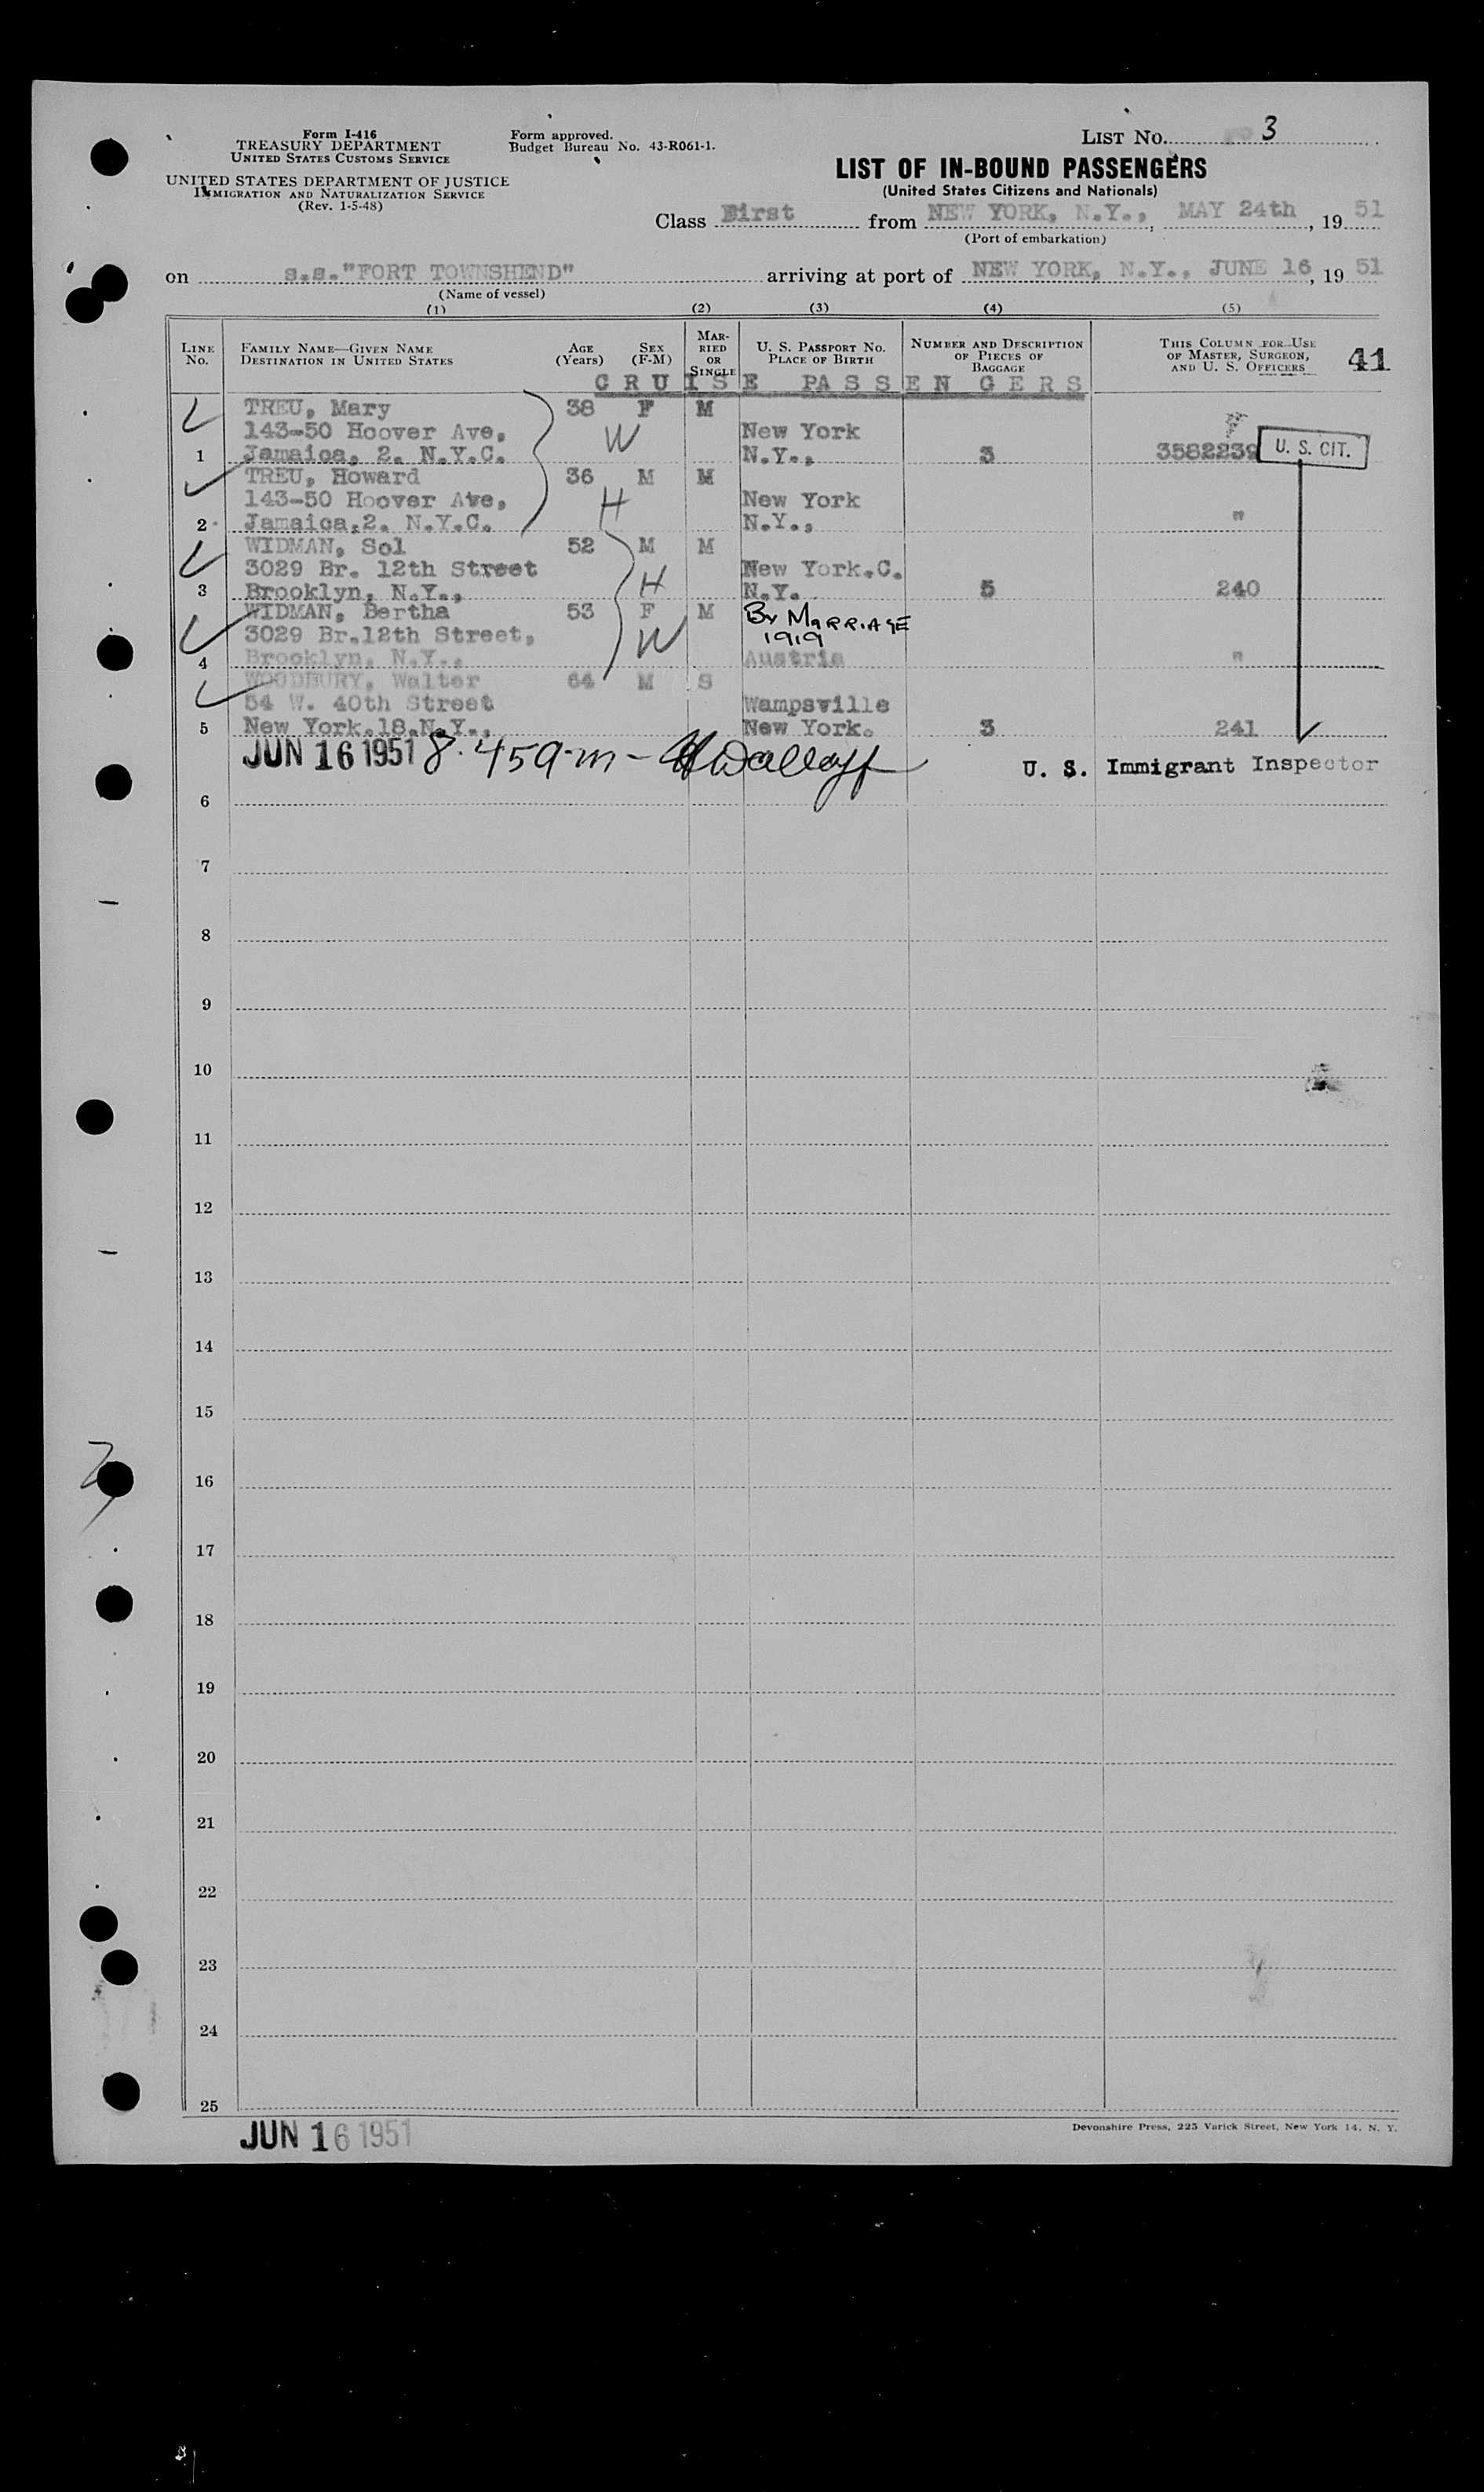 Form I-416
TREASURY DEPARTMENT
UNITED STATES CUSTOMS SERVICE
UNITED STATES DEPARTMENT OF JUSTICE
IMMIGRATION AND NATURALIZATION SERVICE
(Rev. 1-5-48)
Form approved.
Budget Bureau No. 43-R061-1.
LIST No. 3
LIST OF IN-BOUND PASSENGERS
(United States Citizens and Nationals)
Class First from NEW YORK, N.Y., MAY 24th, 1951
(Port of embarkation)
on s.s."FORT TOWNSHEND" arriving at port of NEW YORK, N.Y., JUNE 16, 1951
(Name of vessel)
(1) (2) (3) (4) (5)
LINE No. FAMILY NAME—GIVEN NAME DESTINATION IN UNITED STATES AGE (Years) SEX (F-M) MARRIED OR SINGLE U. S. PASSPORT No. PLACE OF BIRTH NUMBER AND DESCRIPTION OF PIECES OF BAGGAGE THIS COLUMN FOR USE OF MASTER, SURGEON, AND U. S. OFFICERS 41
C R U I S E PA S S E N G E R S
TREU, Mary 38 F M
143-50 Hoover Ave, W New York
1 Jamaica, 2. N.Y.C. N.Y., 3 3582239 U. S. CIT.
TREU, Howard 36 M M
143-50 Hoover Ave, H New York
2 Jamaica,2. N.Y.C. N.Y., "
WIDMAN, Sol 52 M M
3029 Br. 12th Street H New York.C.
3 Brooklyn, N.Y., N.Y. 5 240
WIDMAN, Bertha 53 F M By MARRIAGE
3029 Br.12th Street, W 1919
4 Brooklyn, N.Y., Austria "
WOODBURY, Walter 64 M S
54 W. 40th Street Wampsville
5 New York.18.N.Y., New York. 3 241
JUN 16 1951 8.45 a-m- U. S. Immigrant Inspector
6
7
8
9
10
11
12
13
14
15
16
17
18
19
20
21
22
23
24
25
JUN 16 1951
Devonshire Press, 225 Varick Street, New York 14, N. Y.